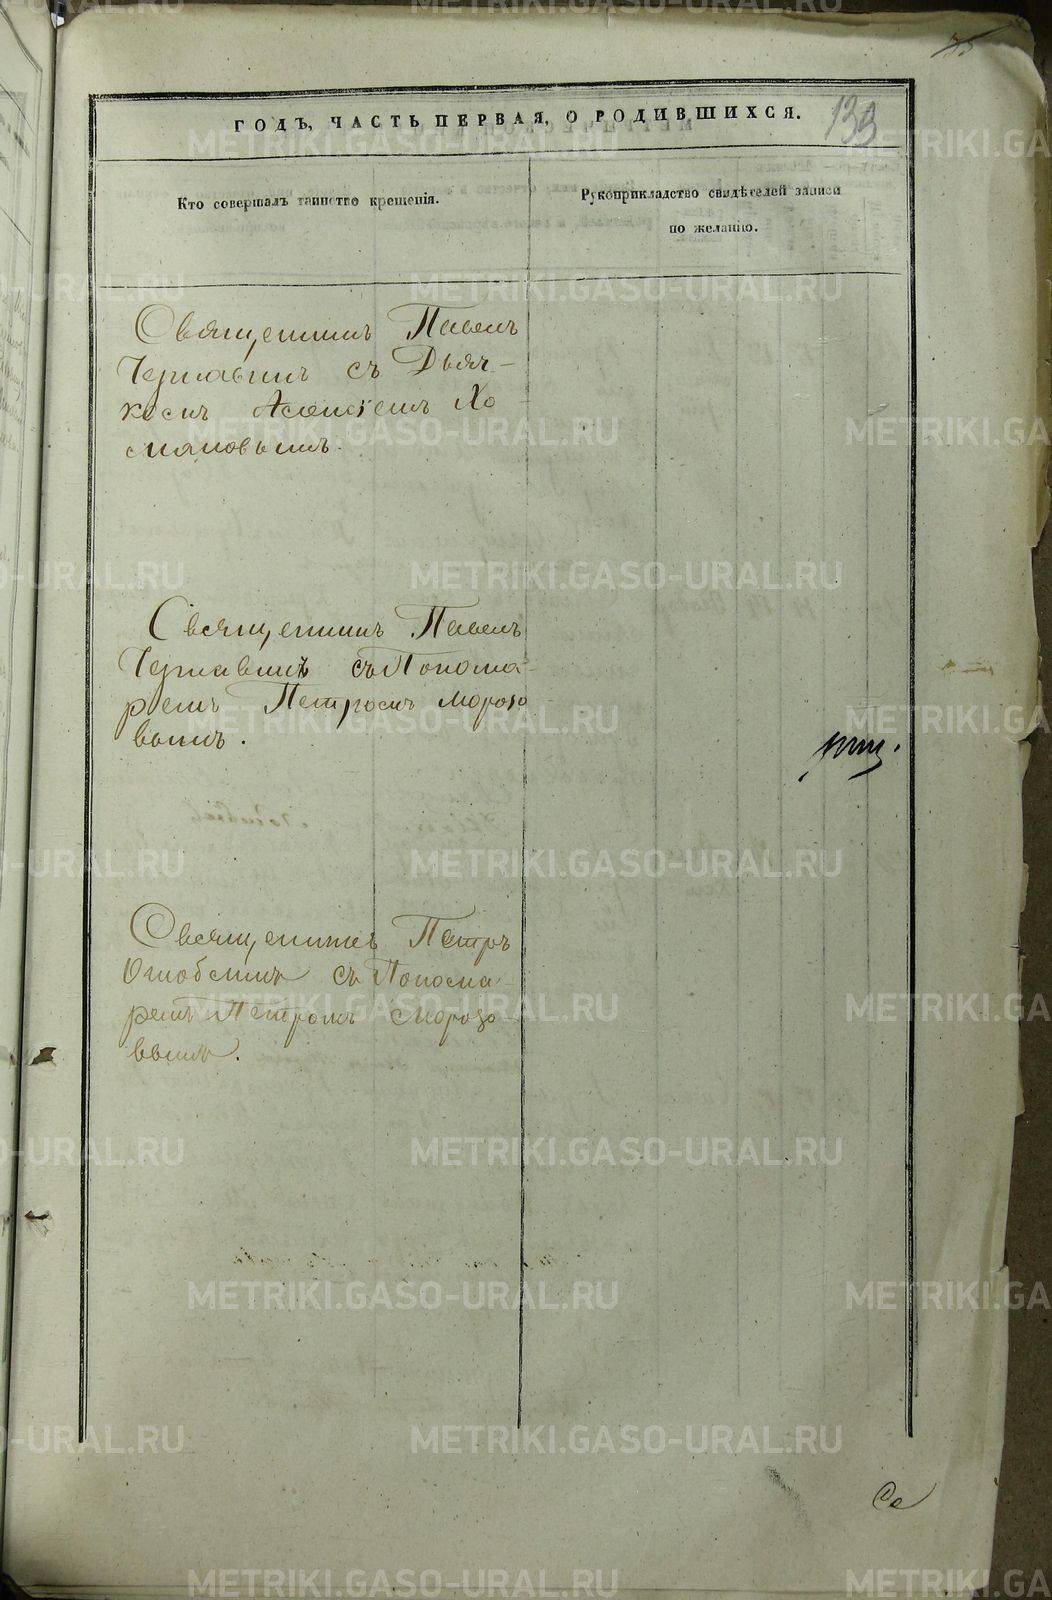 35
133
ГОДЪ, ЧАСТЬ ПЕРВАЯ, О РОДИВШИХСЯ.
Кто совершалъ таинство крещенія.
Рукоприкладство свидѣтелей записи
по желанію.
Священникъ Павелъ
Чернавинъ съ Дьяч-
комъ
Священникъ Павелъ
Чернавинъ съ Понома-
ремъ Петромъ Морозо
вымъ.
Священникъ Петръ
съ Понома
ремъ Петромъ Морозо
вымъ.
METRIKI.GASO-URAL.RU